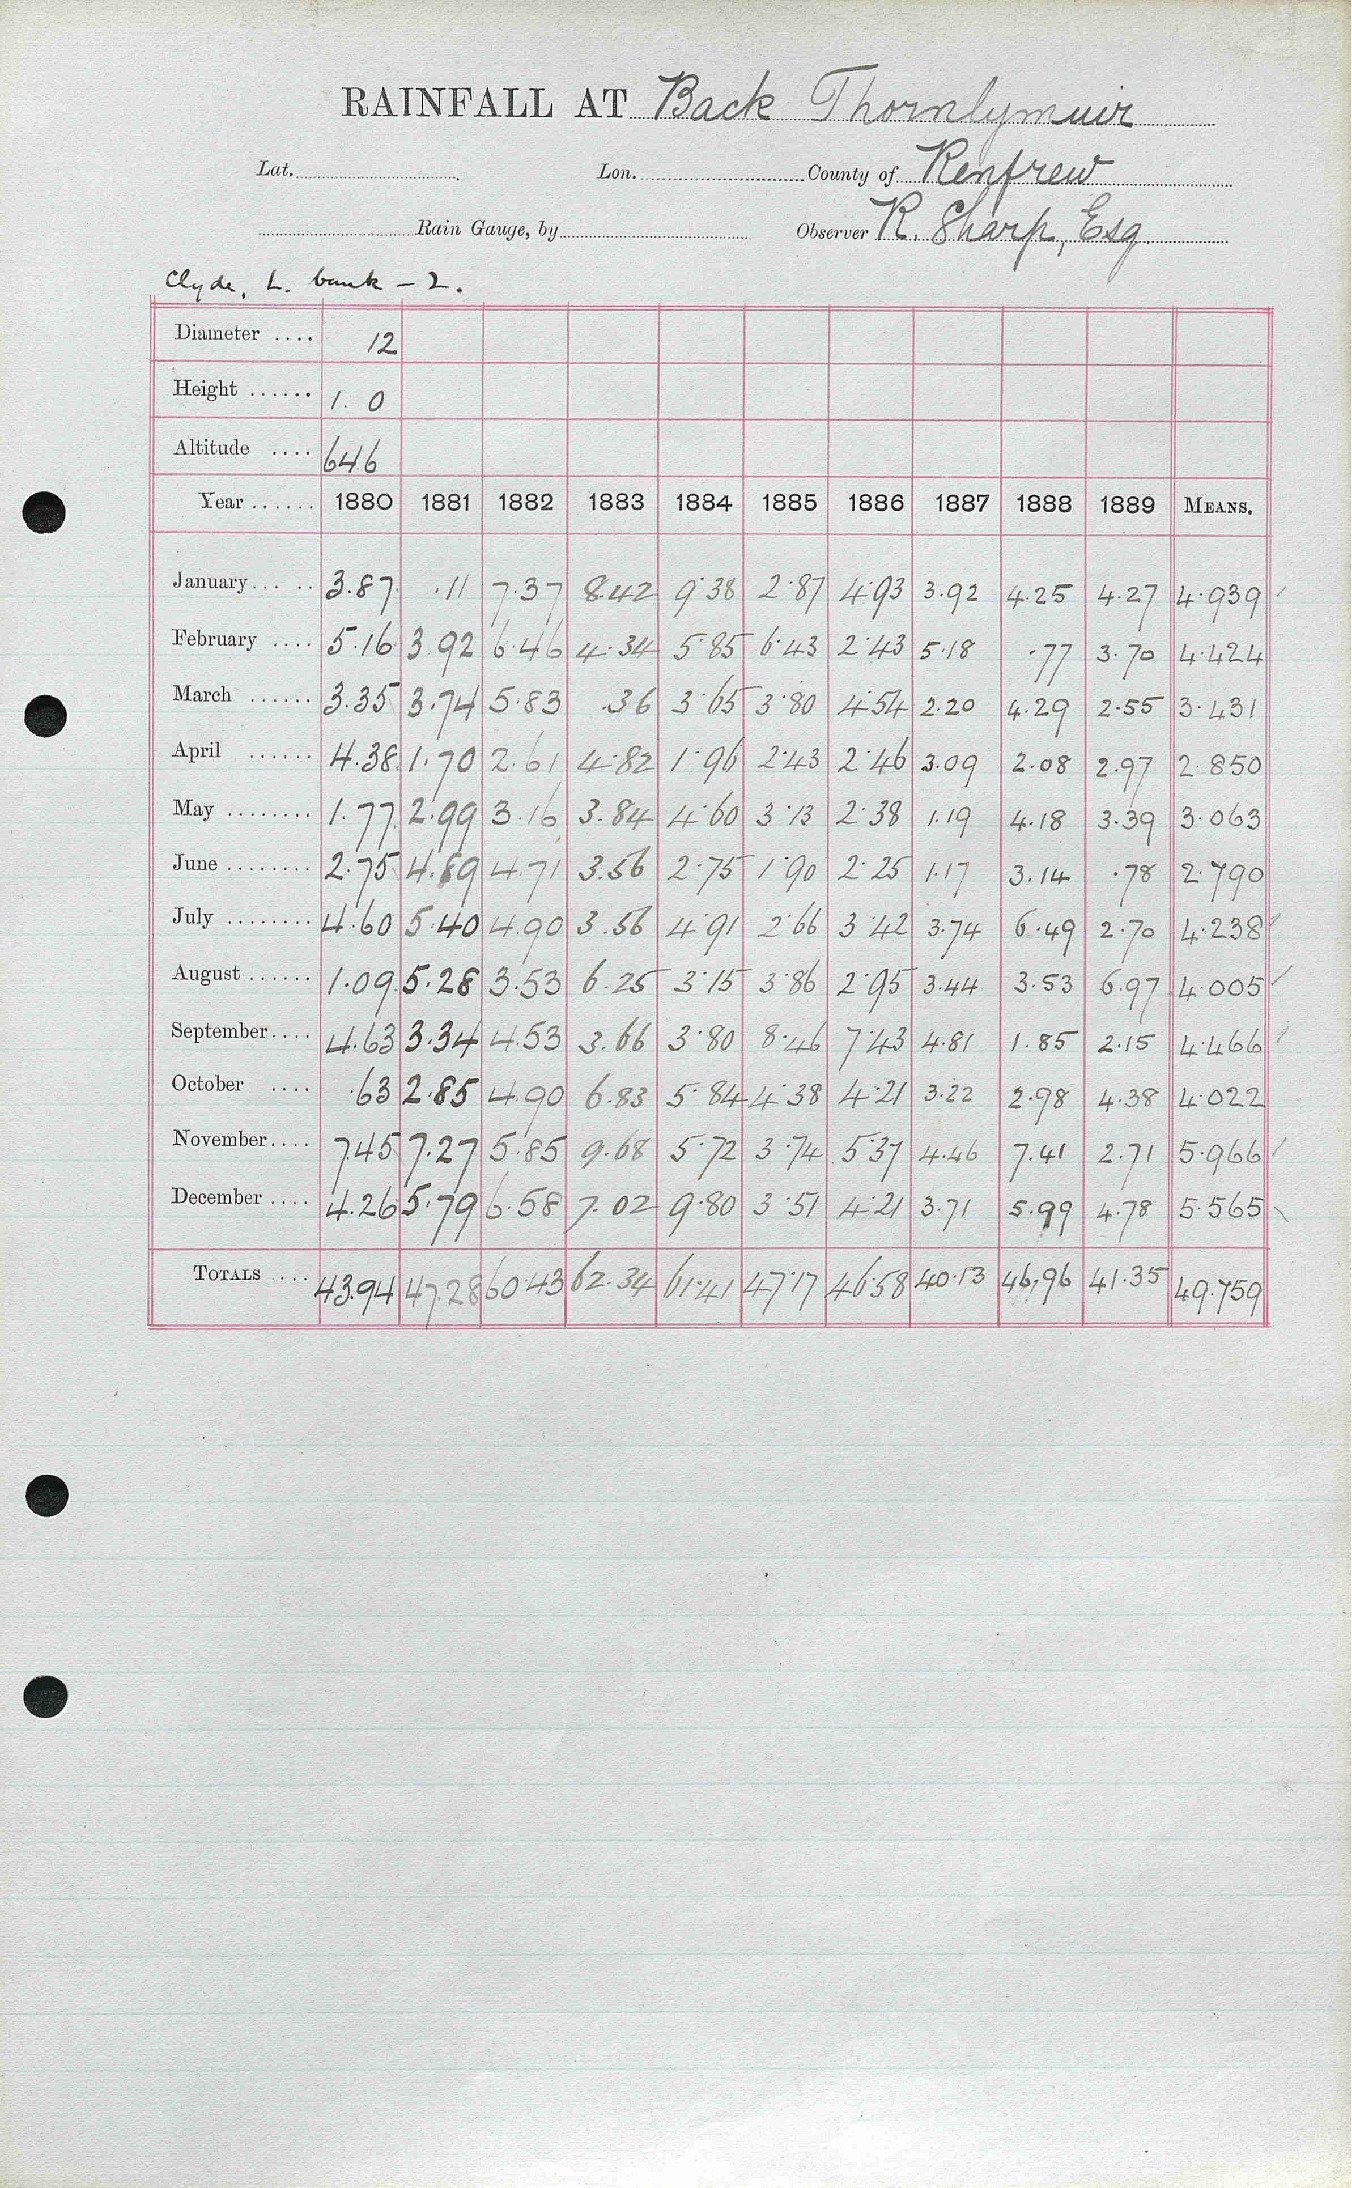 RAINFALL AT Back Thornlymuir
Lat. Lon. County of Renfrew
Rain Gauge, by Observer R. Sharp, Esq.
Clyde, L. bank - 2.
Diameter .... 12
Height ...... 1. 0
Altitude .... 646
Year ...... 1880 1881 1882 1883 1884 1885 1886 1887 1888 1889 MEANS.
January... .. 3.87 .11 7.37 8.42 9.38 2.87 4.93 3.92 4.25 4.27 4.939
February .... 5.16 3.92 6.46 4.34 5.85 6.43 2.43 5.18 .77 3.70 4.424
March ...... 3.35 3.74 5.83 .36 3.65 3.80 4.54 2.20 4.29 2.55 3.431
April ...... 4.38 1.70 2.61 4.82 1.96 2.43 2.46 3.09 2.08 2.97 2.850
May ........ 1.77 2.99 3.16 3.84 4.60 3.13 2.38 1.19 4.18 3.39 3.063
June ........ 2.75 4.89 4.71 3.56 2.75 1.90 2.25 1.17 3.14 .78 2.790
July ........ 4.60 5.40 4.90 3.56 4.91 2.66 3.42 3.74 6.49 2.70 4.238
August ...... 1.09 5.28 3.53 6.25 3.15 3.86 2.95 3.44 3.53 6.97 4.005
September.... 4.63 3.34 4.53 3.66 3.80 8.46 7.43 4.81 1.85 2.15 4.466
October .... .63 2.85 4.90 6.83 5.84 4.38 4.21 3.22 2.98 4.38 4.022
November.... 7.45 7.27 5.85 9.68 5.72 3.74 5.37 4.46 7.41 2.71 5.966
December .... 4.26 5.79 6.58 7.02 9.80 3.51 4.21 3.71 5.99 4.78 5.565
TOTALS .... 43.94 47.28 60.43 62.34 61.41 47.17 46.58 40.13 46.96 41.35 49.759